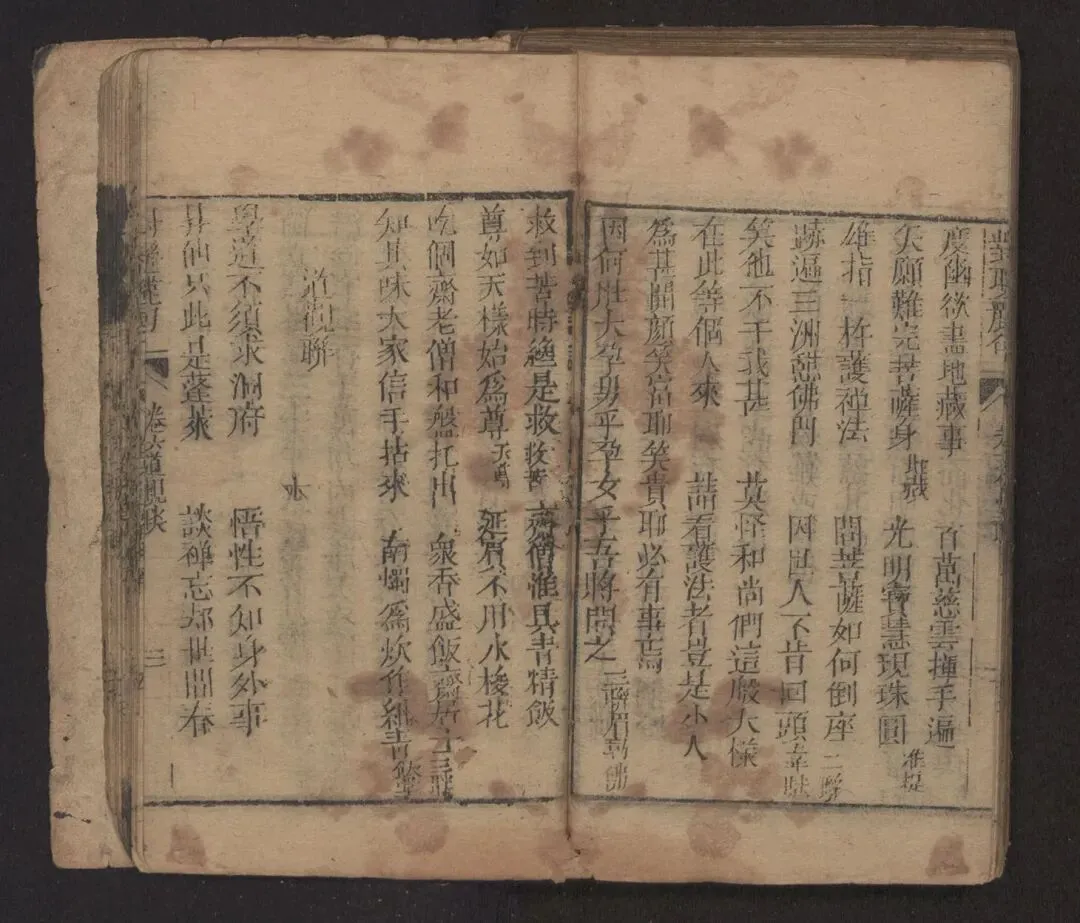 度幽欲盡地藏事　百萬慈雲揮手遍
矢願難完菩薩身地藏　光明寶慧現珠圓准提
雄指一杵護禪法　問菩薩如何倒座二聯
跡遍三洲憩佛門　因世人不肯回頭韋馱
矣他不干我甚　莫怪和尚們這般大樣
在此等個人來　請看護法者豈是小人
為甚開顏笑富耶笑貴耶必有事焉
因何肚大孕男乎孕女乎吾將問之
救到苦時總是救救苦　齋僧惟具青精飯
尊如天樣始為尊天尊　延賓不用水梭花
吃個齋老僧和盤托出　眾香盛飯齋居士三
知其味大家信手拈來　南燭為炊作紺青齋堂
道觀聯
學道不須求洞府　悟性不知身外事
昇仙只此是蓬萊　談禪忘却世間春